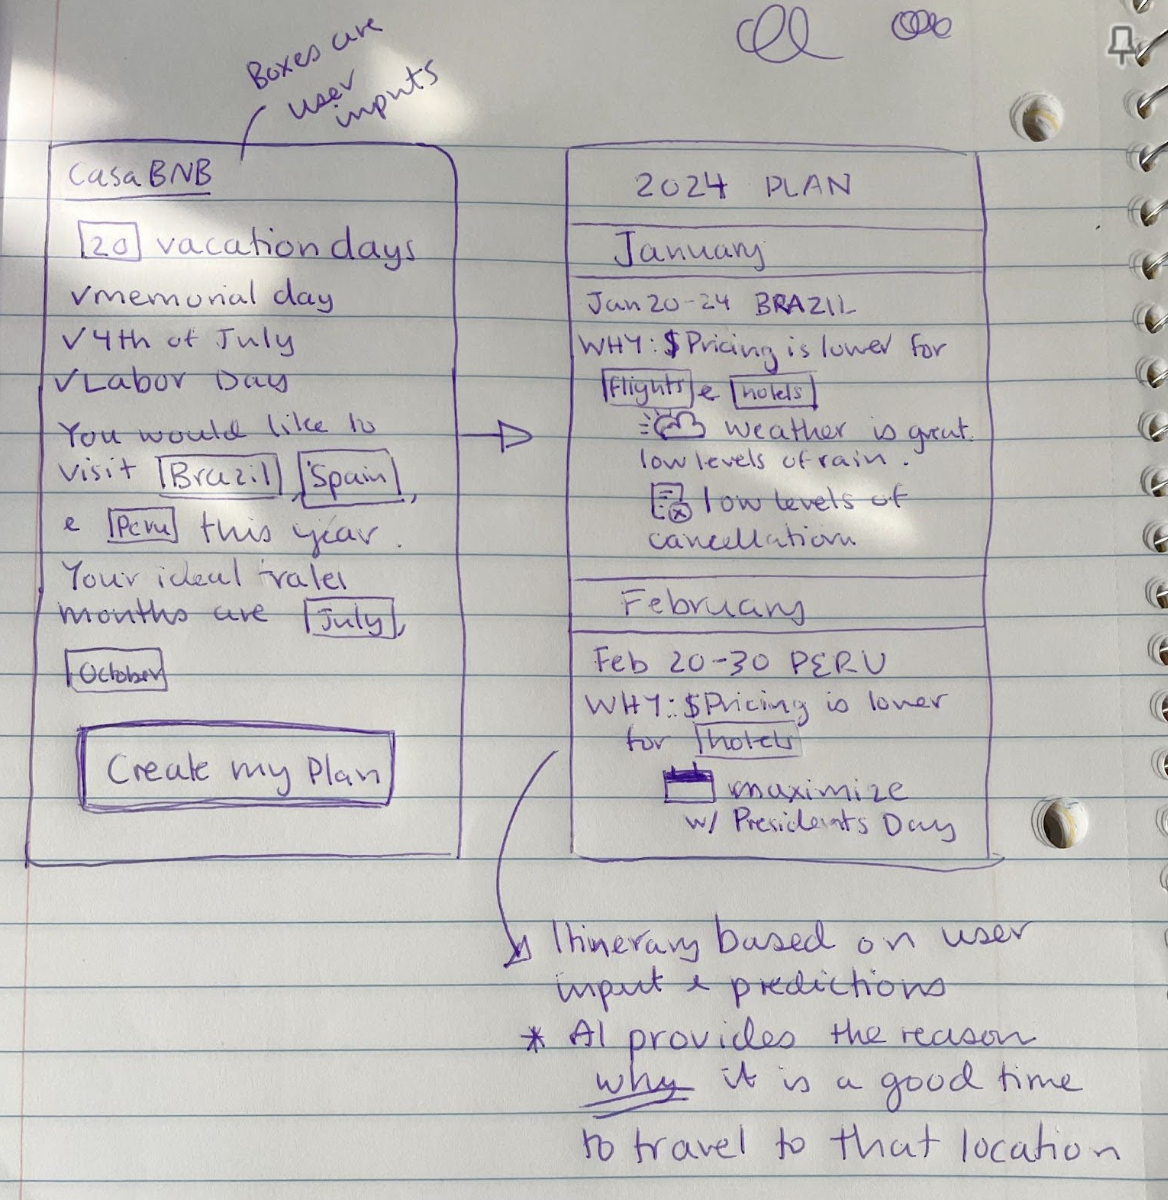 Boxes are
user
inputs
CasaBNB
20 vacation days
✓memorial day
✓4th of July
✓Labor Day
You would like to
visit Brazil, Spain,
e Peru this year.
Your ideal tralel
months are July,
October
Create my Plan
2024 PLAN
January
Jan 20-24 BRAZIL
WHY: $Pricing is lower for
flights e hotels
weather is great.
low levels of rain.
low levels of
cancellation
February
Feb 20-30 PERU
WHY: $Pricing is lower
for hotels
maximize
w/ Presidents Day
Itinerary based on user
input & predictions
* AI provides the reason
why it is a good time
to travel to that location